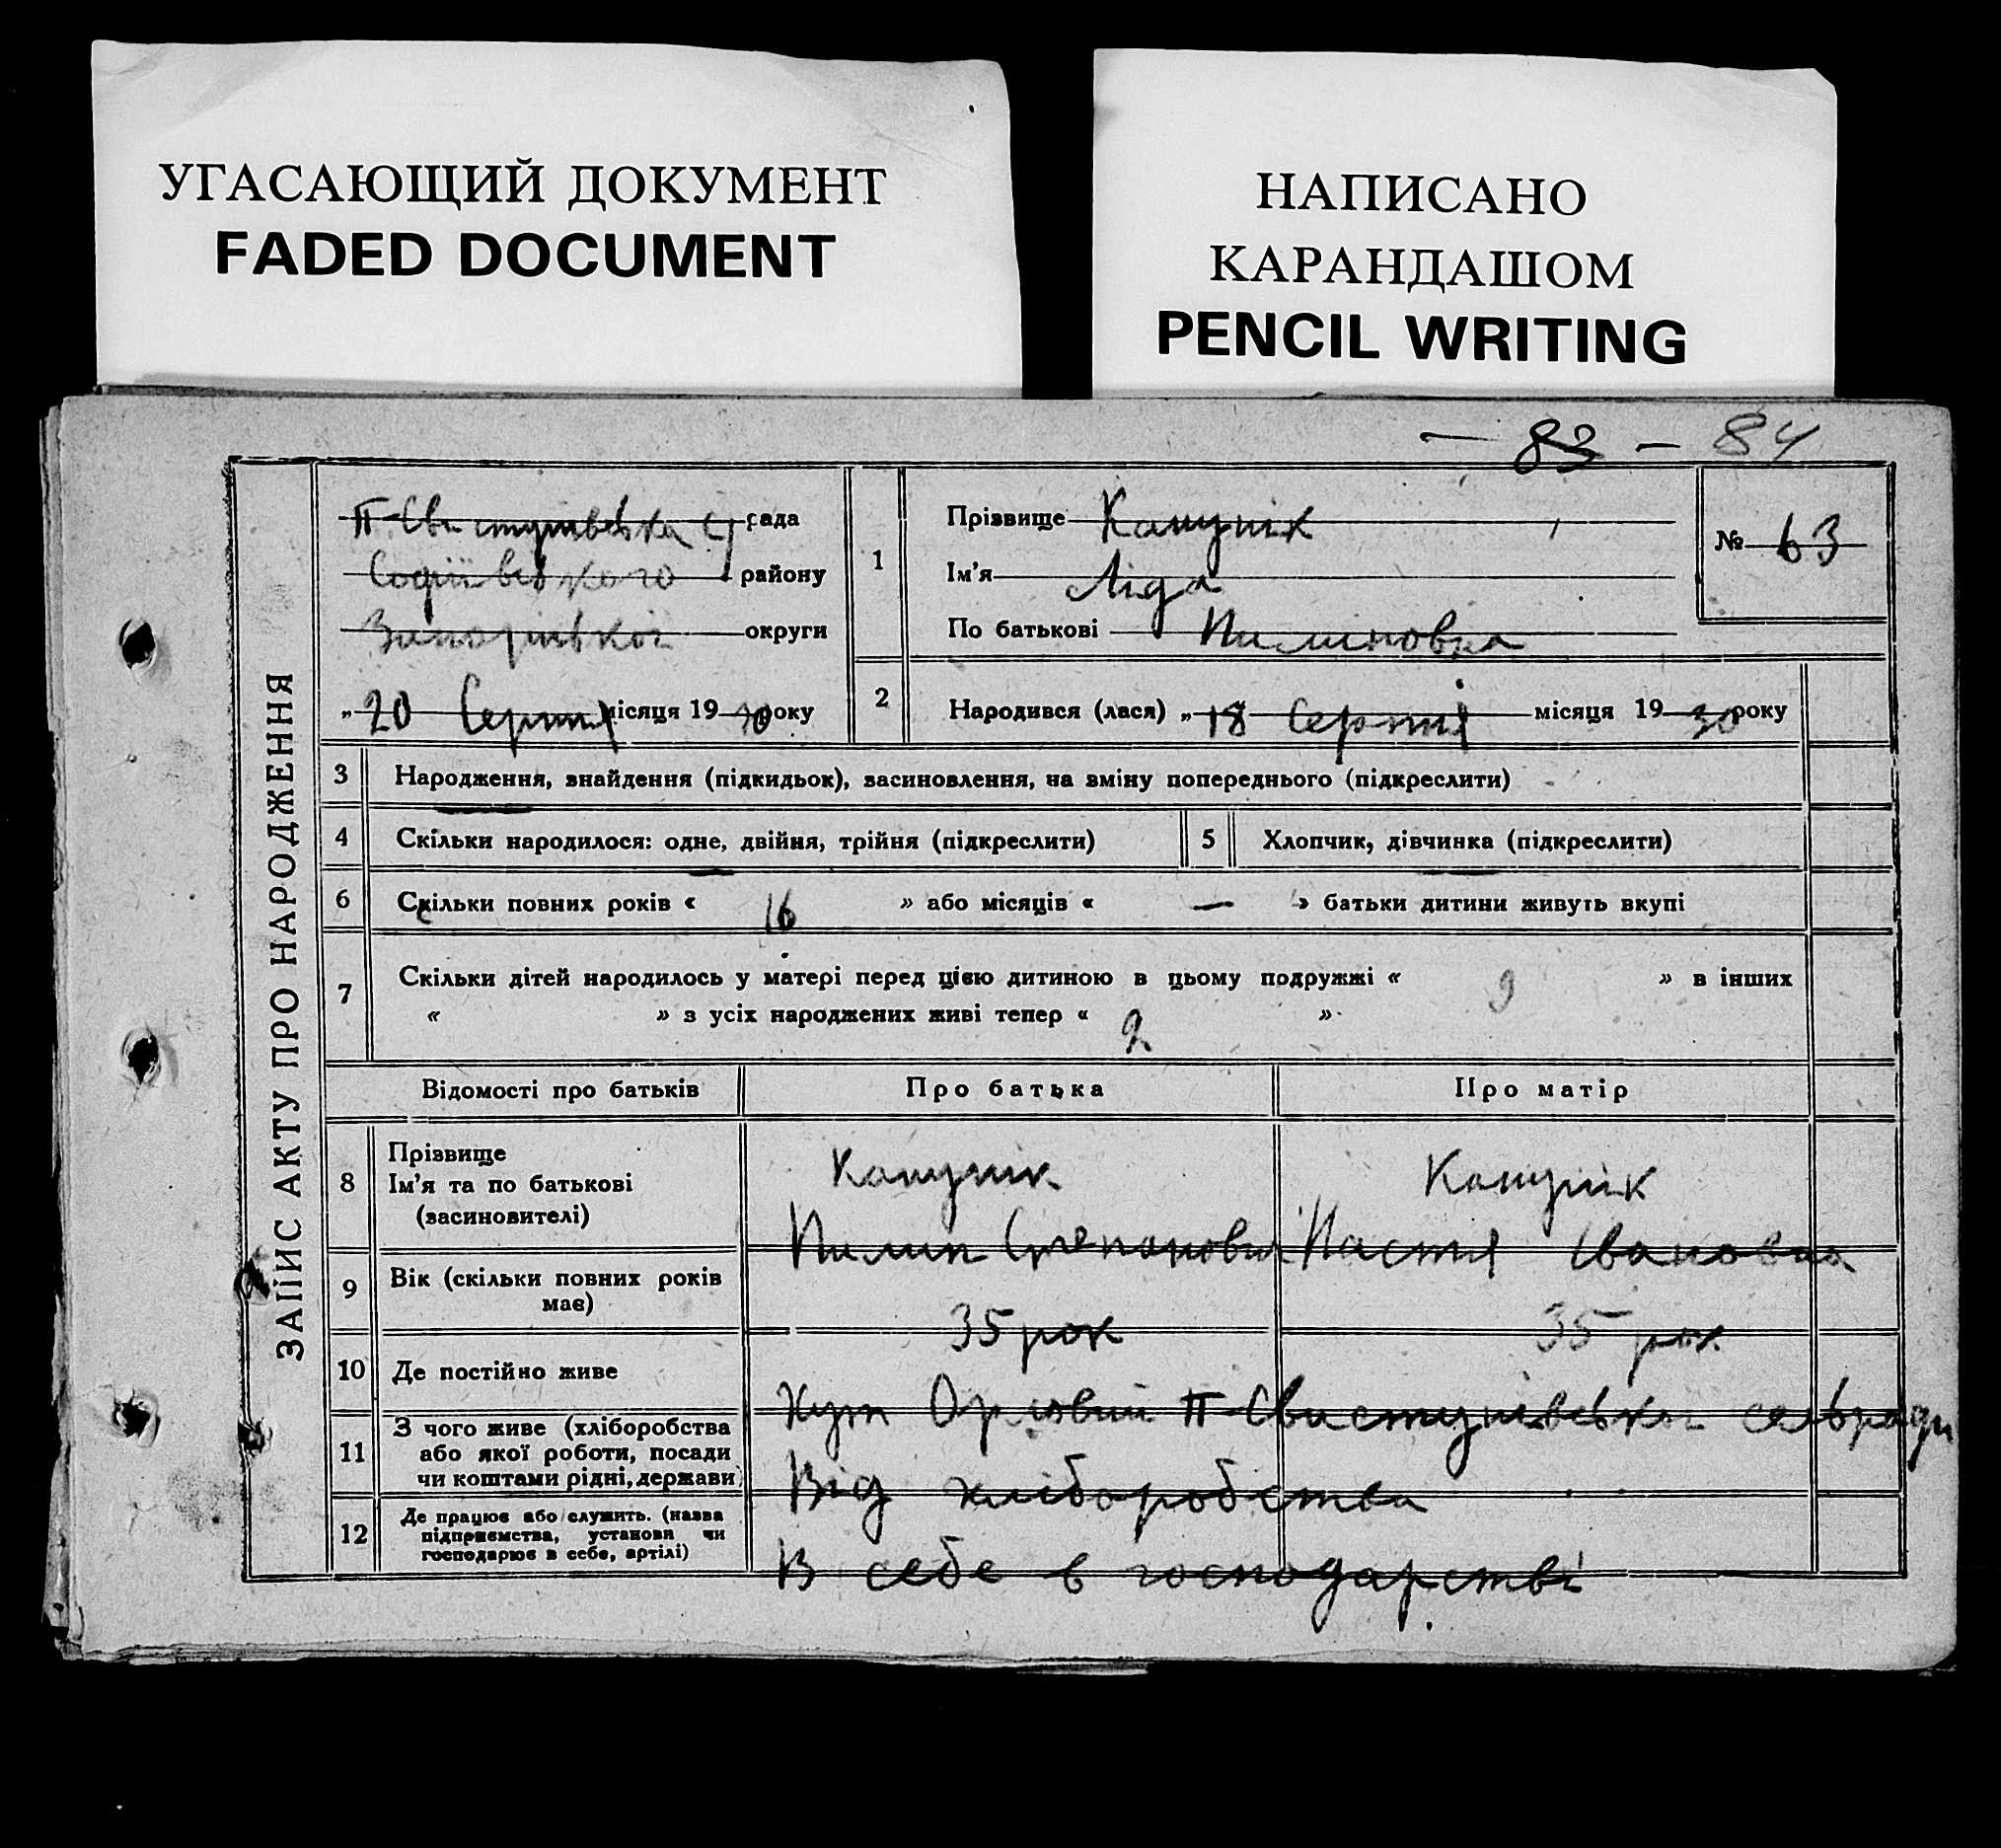 УГАСАЮЩИЙ ДОКУМЕНТ
FADED DOCUMENT
НАПИСАНО
КАРАНДАШОМ
PENCIL WRITING
— 83 — 84
ЗАПИС АКТУ ПРО НАРОДЖЕННЯ
П-Свистунівська с/рада
Софіївського району
Запорізької округи
„20 Серпня місяця 1930 року
1
Прізвище
Ім’я Ліда
По батькові Пилиповна
№ 63
2
Народився (лася) „18 Серпня місяця 1930 року
3 Народження, знайдення (підкидьок), засиновлення, на зміну попереднього (підкреслити)
4 Скільки народилося: одне, двійня, трійня (підкреслити)
5 Хлопчик, дівчинка (підкреслити)
6 Скільки повних років « 16 » або місяців « — » батьки дитини живуть вкупі
7 Скільки дітей народилось у матері перед цією дитиною в цьому подружжі « 9 » в інших
« » з усіх народжених живі тепер « »
Відомості про батьків Про батька Про матір
8 Прізвище
Ім’я та по батькові
(засиновителі)
Пилип Степанович Настя Івановна
9 Вік (скільки повних років
має)
35 рок 35 рок
10 Де постійно живе
Хут Орловий П-Свистунівської сельради
11 З чого живе (хліборобства
або якої роботи, посади
чи коштами рідні, держави)
Від хліборобства
12 Де працює або служить. (назва
підприємства, установи чи
господарює в себе, артілі)
В себе в господарстві